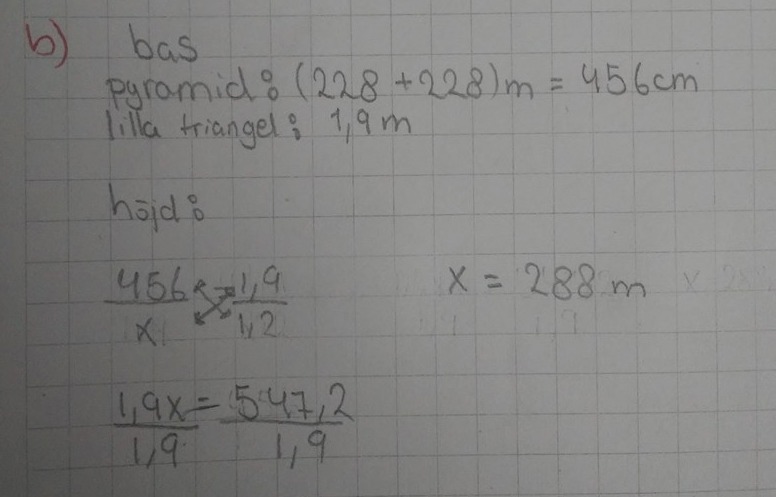 b) bas
pyramid: (228 + 228)m = 456cm
lilla triangel: 1,9m
höjd:
456/x = 1,9/1,2
x = 288 m
1,9x/1,9 = 547,2/1,9